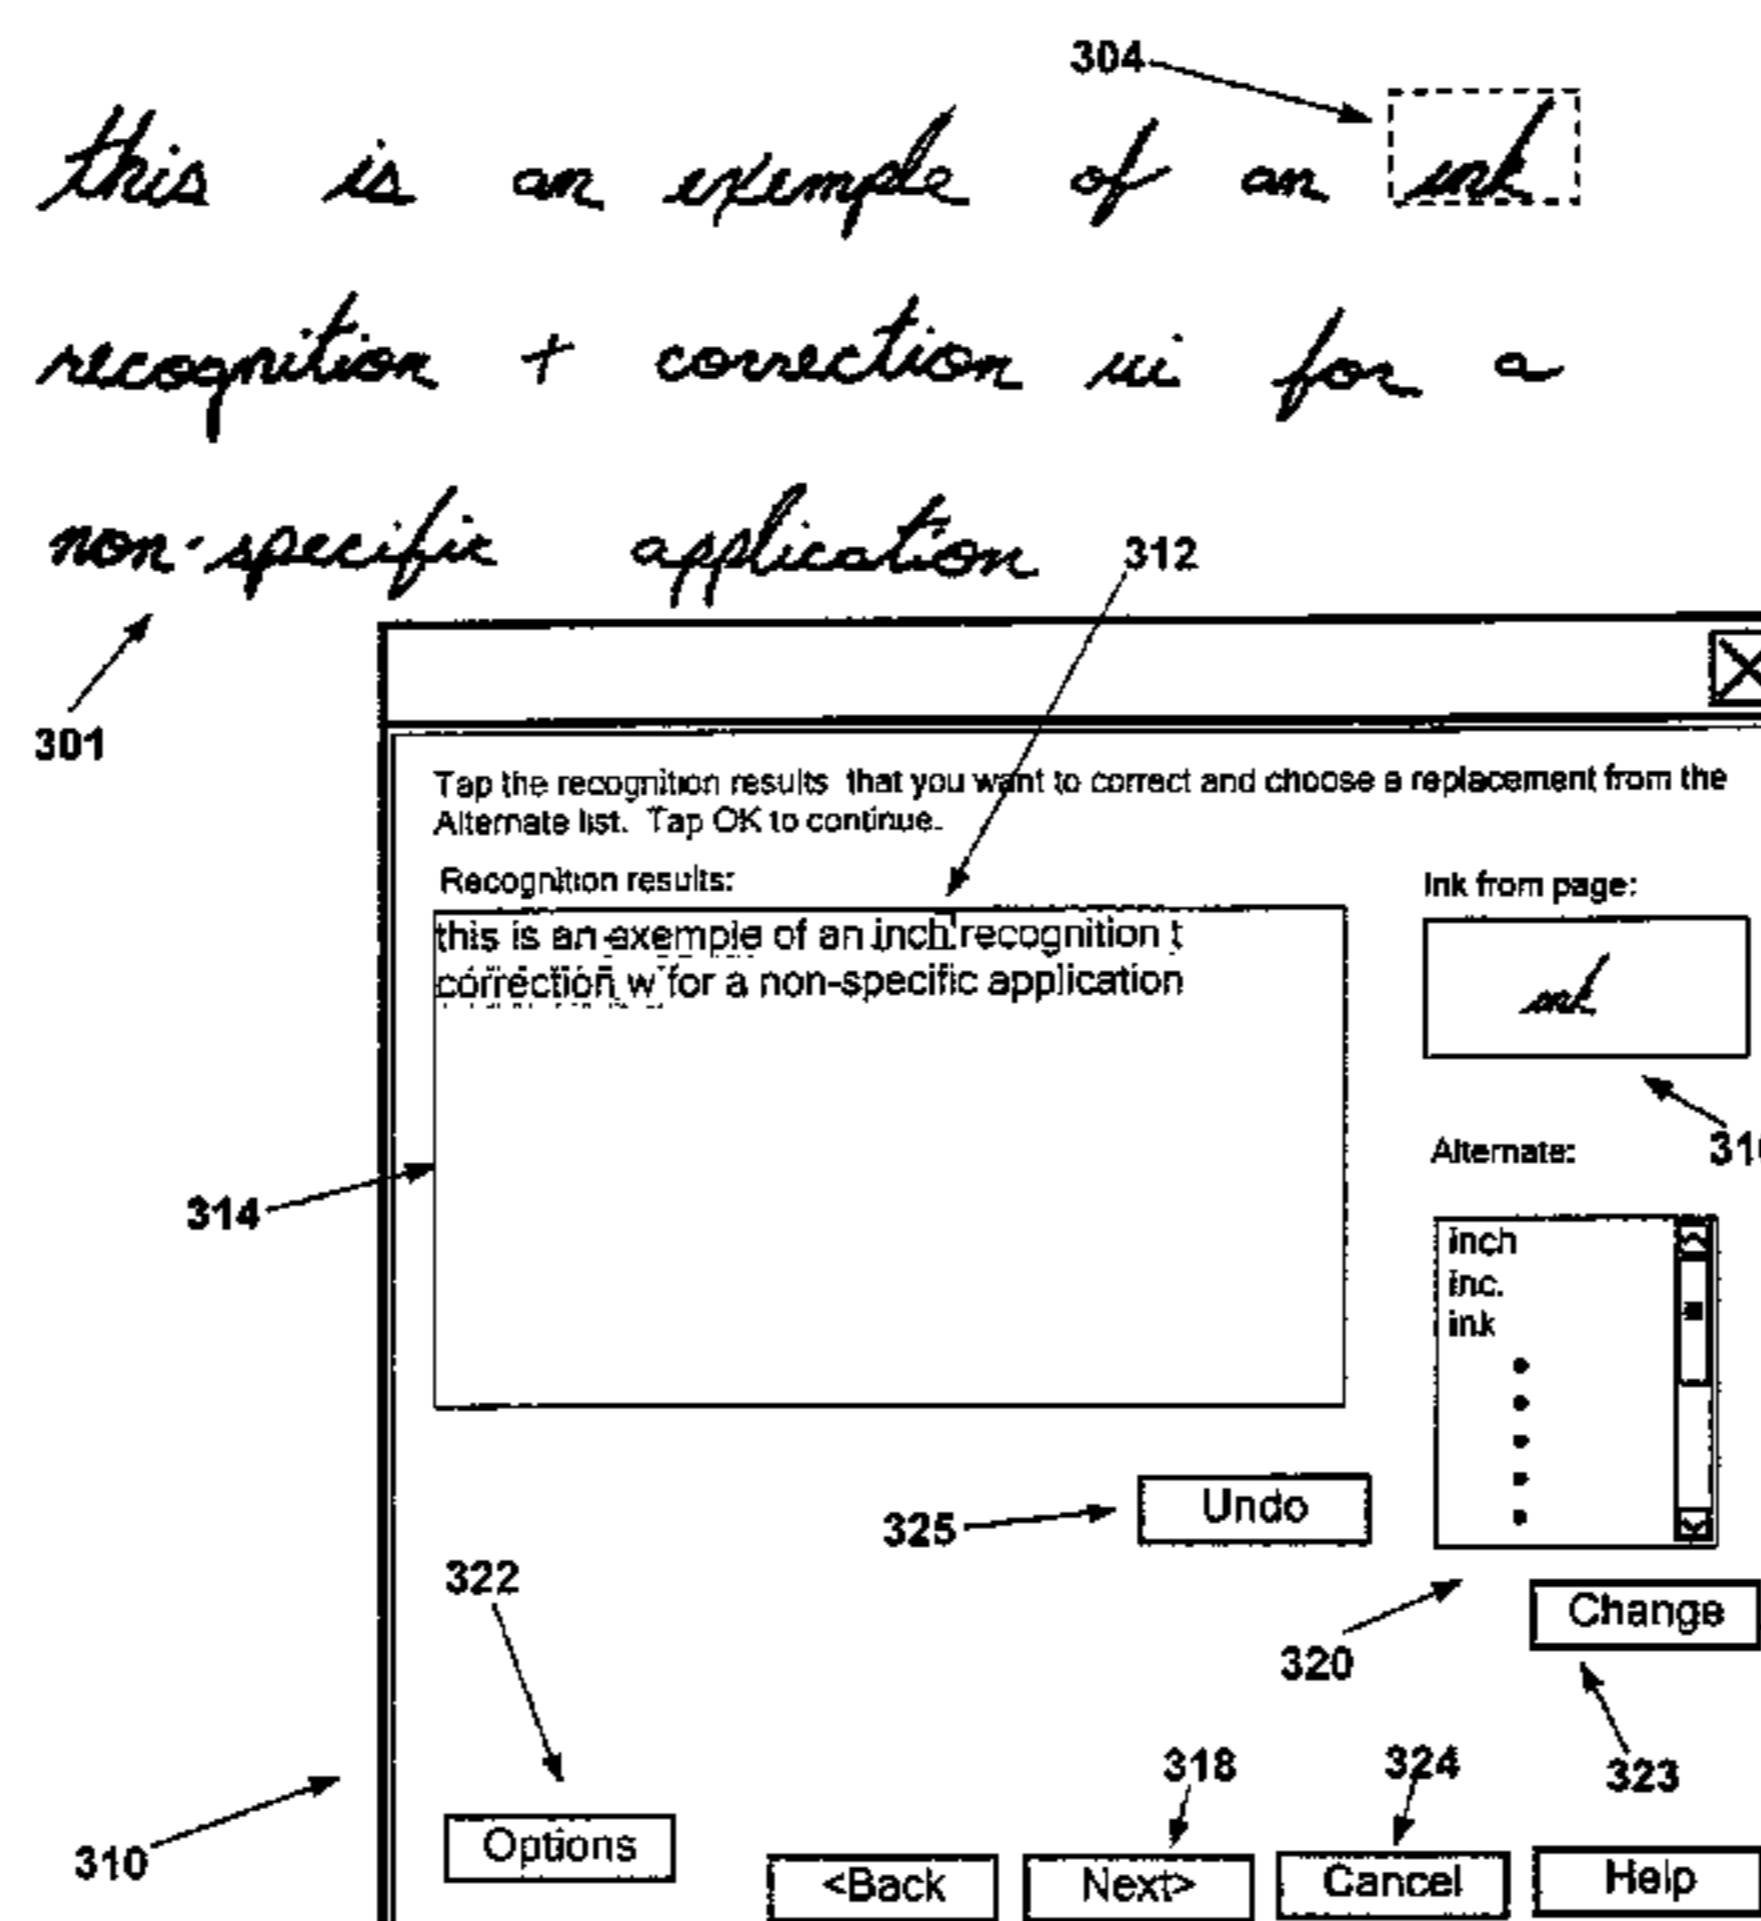 304
this is an exemple of an ink
recognition + correction ui for a
non-specific application
312
301
Tap the recognition results that you want to correct and choose a replacement from the
Alternate list. Tap OK to continue.
Recognition results:
Ink from page:
this is an exemple of an inch recognition t
correction w for a non-specific application
ink
Alternate:
314
inch
inc.
ink
325
Undo
322
Change
320
318
324
323
310
Options
<Back
Next>
Cancel
Help